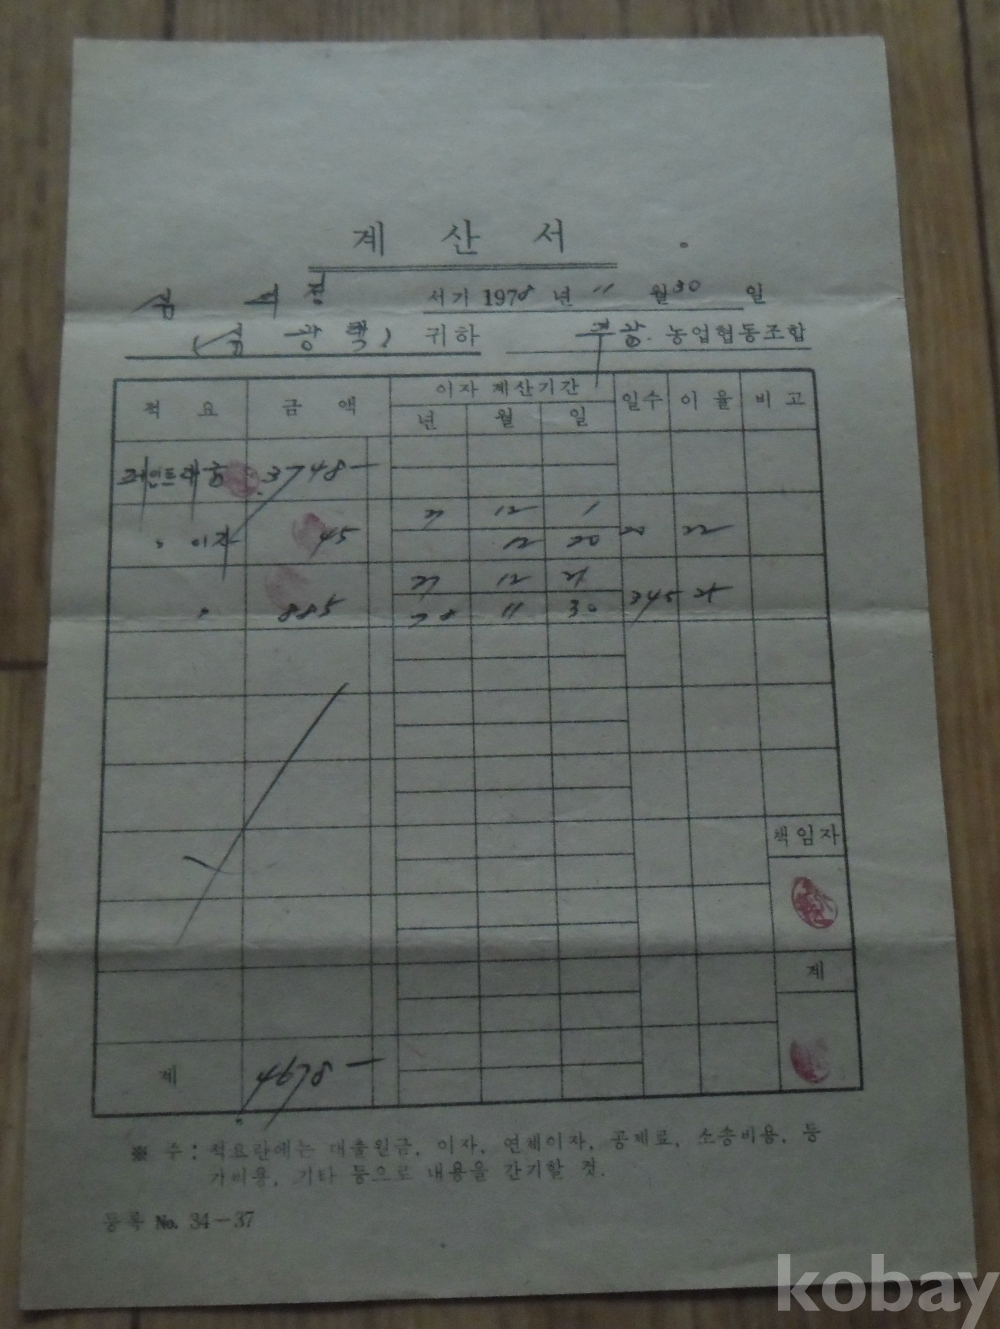 계 산 서
서기 1978 년 11 월 30 일
귀하 농업협동조합
적 요 금 액 이자 계산기간 일수 이 율 비 고
년 월 일
3748-
이자 45 77 12 1 20 22
12 20
〃 885 77 12 21 345 21
78 11 30
책임자
계
계 4678-
※ 주 : 적요란에는 대출원금, 이자, 연체이자, 공제료, 소송비용, 등
기비용, 기타 등으로 내용을 간기할 것.
등록 No. 34-37
kobay